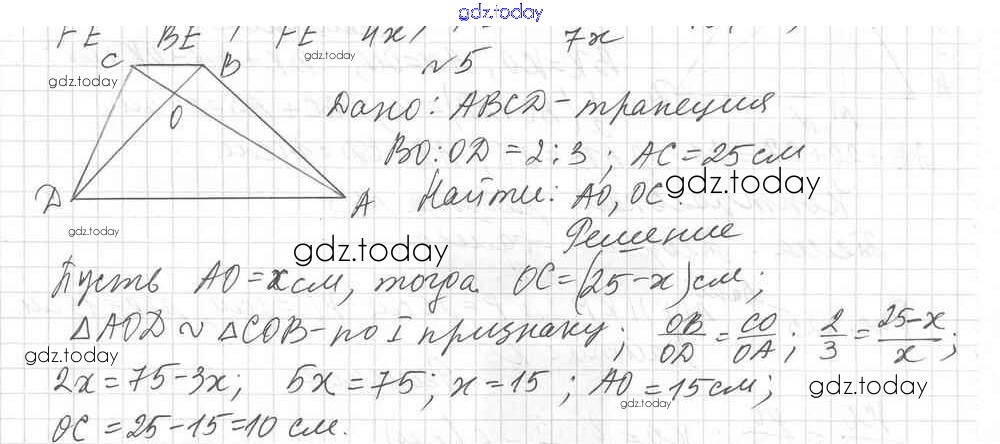 gdz.today
FE BE , FE 4x , 7x
gdz.today
N 5
C B
gdz.today
O
Дано: ABCD - трапеция
BO : OD = 2 : 3 ; AC = 25 см
Найти: AO, OC.
gdz.today
D A
gdz.today
Решение
gdz.today
Пусть AO = x см, тогда OC = (25 - x) см;
△AOD ~ △COB - по I признаку; OB/OD = CO/OA ; 2/3 = 25-x/x ;
gdz.today
2x = 75 - 3x; 5x = 75; x = 15 ; AO = 15 см;
gdz.today
gdz.today
OC = 25 - 15 = 10 см.